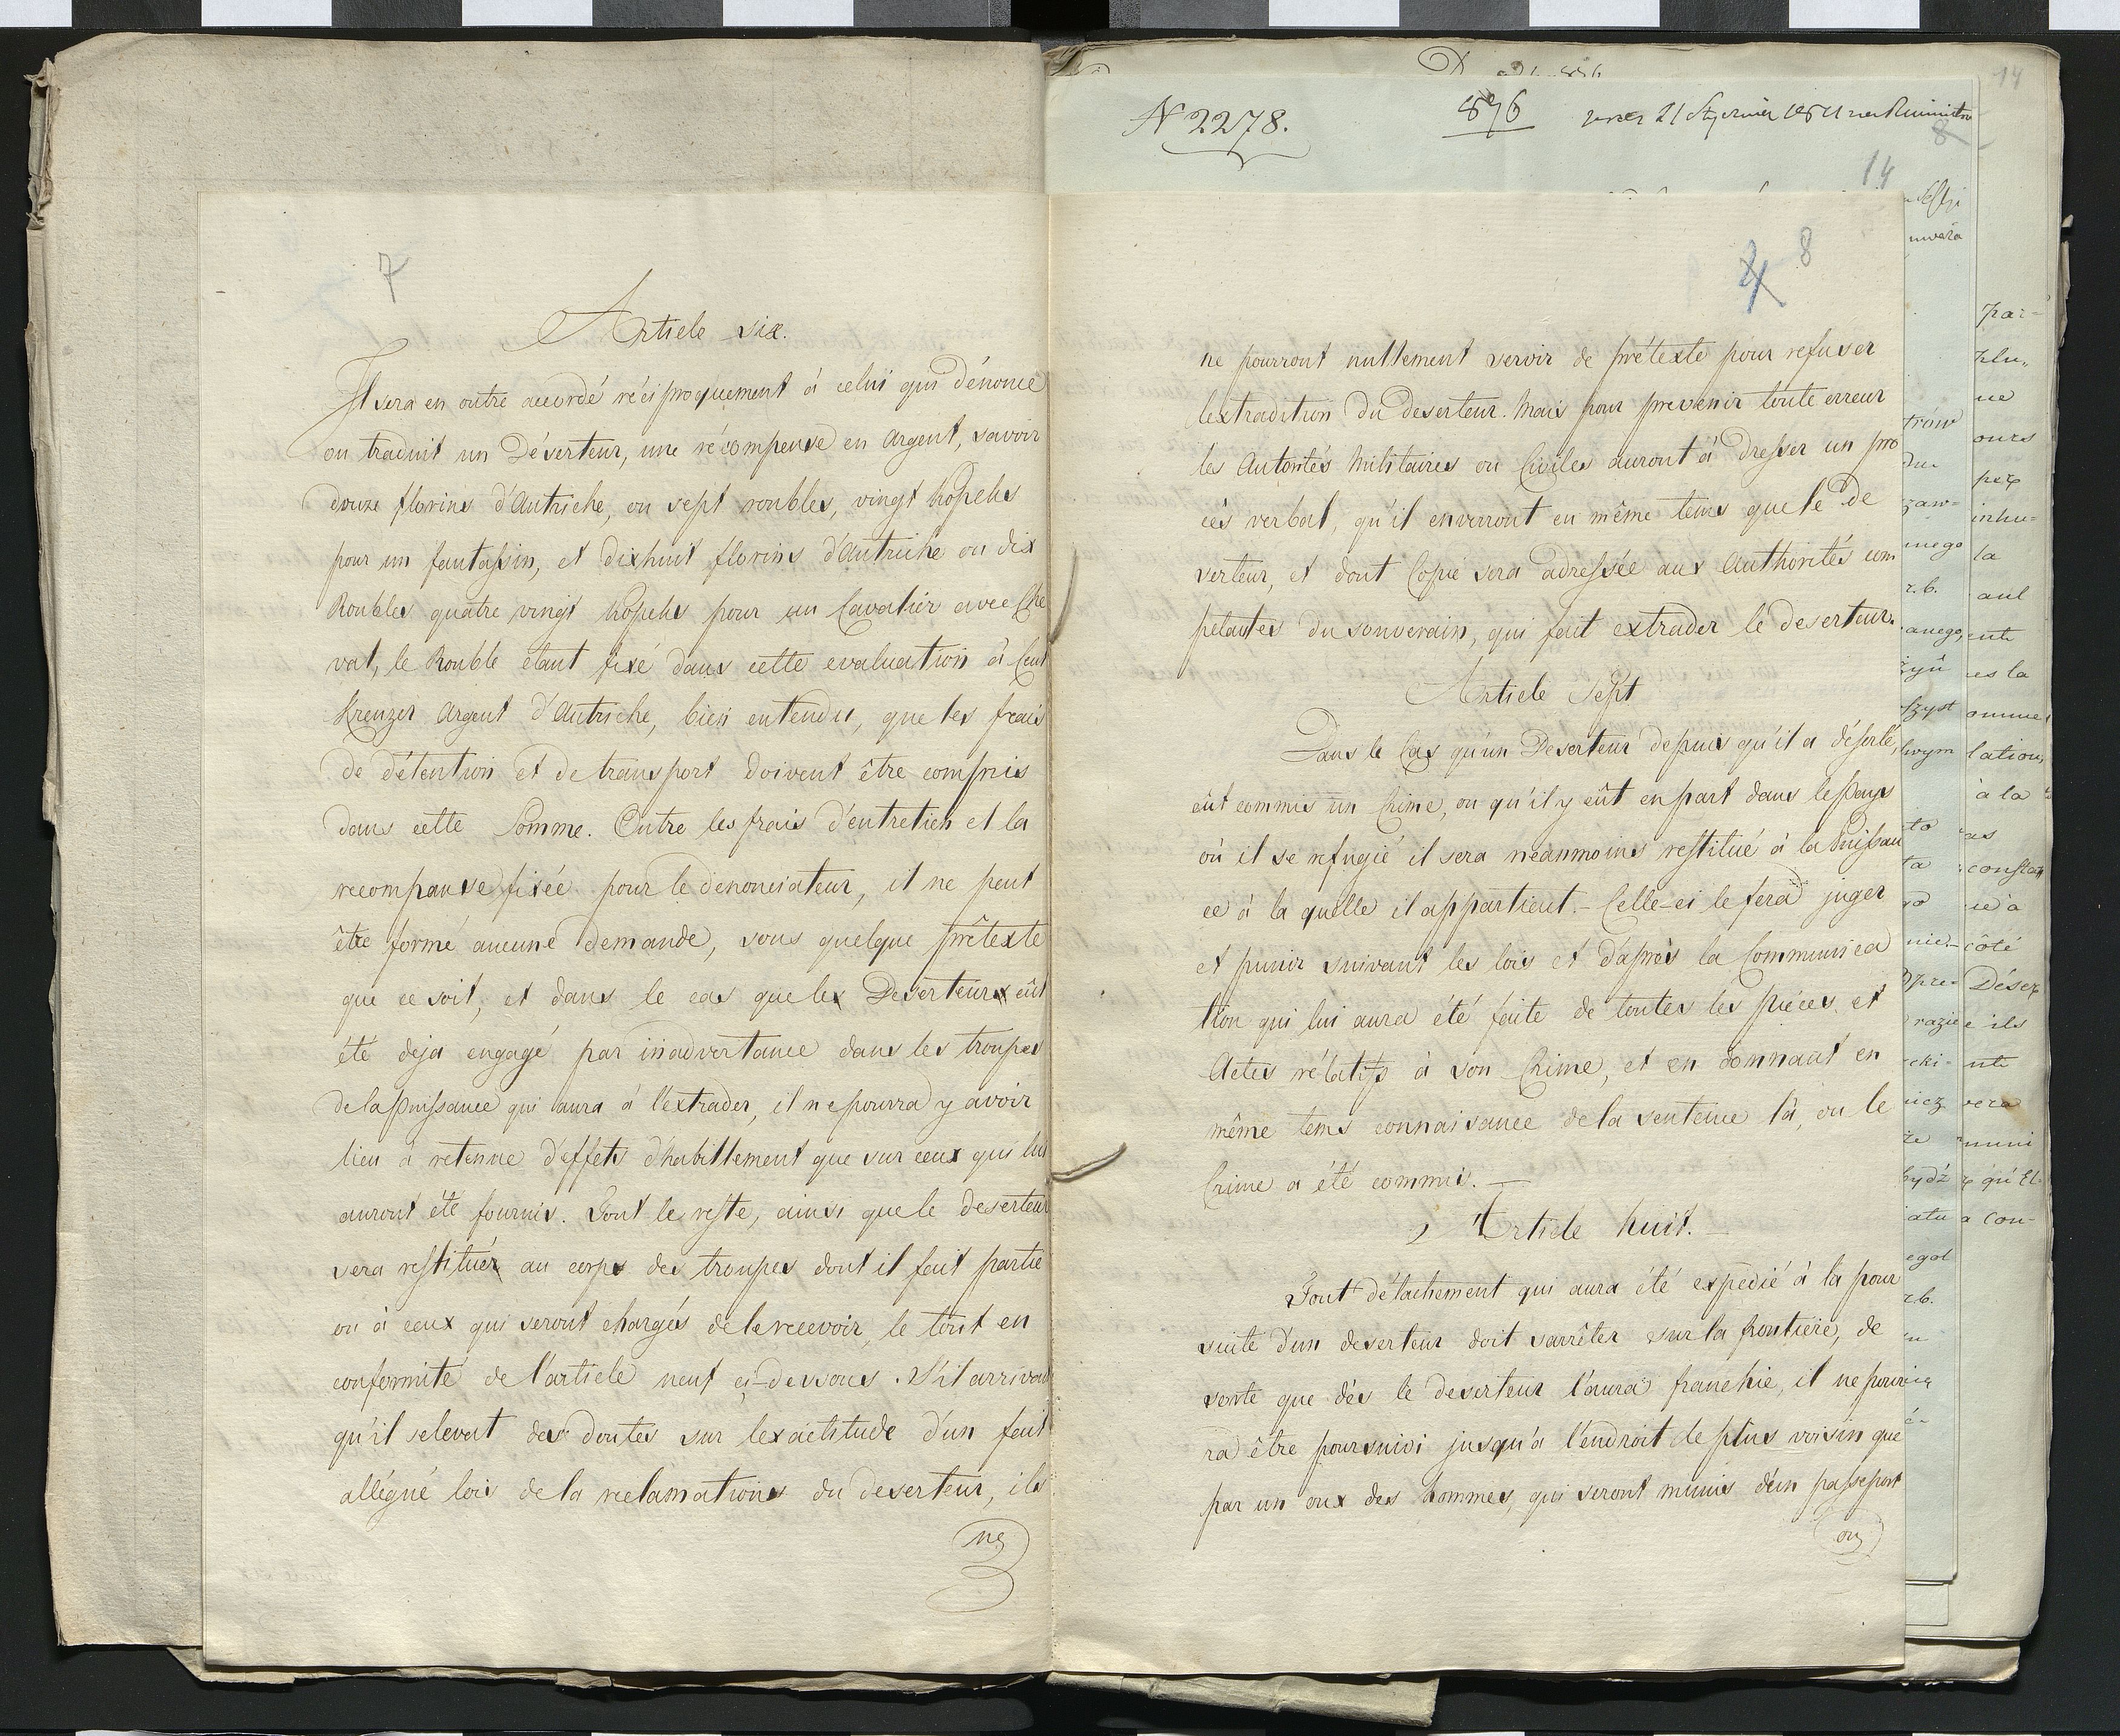 7
Article six.
Il sera en outre accordé réciproquement à celui qui dénonce
ou traduit un Déserteur, une récompense en Argent, savoir
douze florins d'Autriche, ou sept roubles, vingt kopeks
pour un fantassin, et dixhuit florins d'Autriche ou dix
Roubles quatre vingt kopeks pour un Cavalier avec Che
val, le Rouble étant fixé dans cette evaluation à Cent
Kreuzer Argent d'Autriche, bien entendu, que les frais
de détention et de transport doivent être compris
dans cette Somme. Outre les frais d'entretien et la
recompause fixée pour le dénonciateur, il ne peut
être formé aucune demande, sous quelque prêtexte
que ce soit, et dans le cas que les Deserteurs eût
été deja engagé par inadvertance dans les troupes
de la puissance qui aura à l'extrader, il ne pourra y avoir
lieu à retenue d'effets d'habillement que sur ceux qui lui
auront été fournis. Tout le reste, ainsi que le deserteur
sera restituér au corps des troupes dont il fait partie
ou à ceux qui seront chargés de le recevoir, le tout en
conformité de l'article neuf ci-dessous. S'il arrivait
qu'il selevat des doutes sur lexactitude d'un fait
allégué lors de la reclamations du deserteur, ils
ne
N 2278.
876
14
14
8
8
ne pourront nullement servir de prétexte pour refuser
lextradition du deserteur. Mais pour prevenir toute erreur
les Autorités Militaires ou Civiles auront à dresser un pro
cès verbal, qu'il enverront en même tems que le De
serteur, et dont Copie sera adressée aux Authorités com
petantes du souverain, qui fait extrader le deserteur.
Article Sept
Dans le Cas qu'un Deserteur depuis qu'il a déserté,
eût commis un Crime, ou qu'il y eût en part dans le pays
où il se refugié il sera neanmoins restitué à la Puissan
ce à la quelle il appartient. - Celle-ci le fera juger
et punir suivant les lois et d'après la Communica
tion qui lui aura été faite de toutes les pièces et
Actes rélatifs à son Crime, et en donnant en
même tems connaisance de la sentence là, ou le
Crime a été commis. —
Article huit. —
Tout détachement qui aura été expedié à la pour
suite d'un deserteur doit sarrêter sur la frontière, de
sorte que dès le deserteur l'aura franchie, il ne pour
ra être poursuivi jusqu'à l'endroit le plus voisin que
par un oux des hommes, qui seront munis d'un passeport
ou